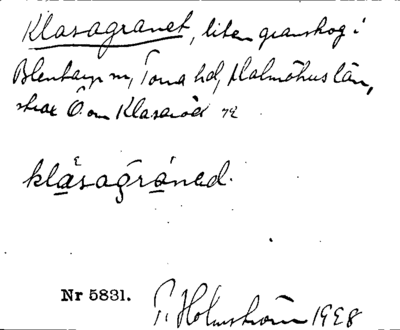 Klasagranet, liten granskog i
Blentarp sn, Torna hd, Malmöhus län,
strax Ö om Klasaröd
klasagraned.
Nr 5831.
P. Holmström 1928